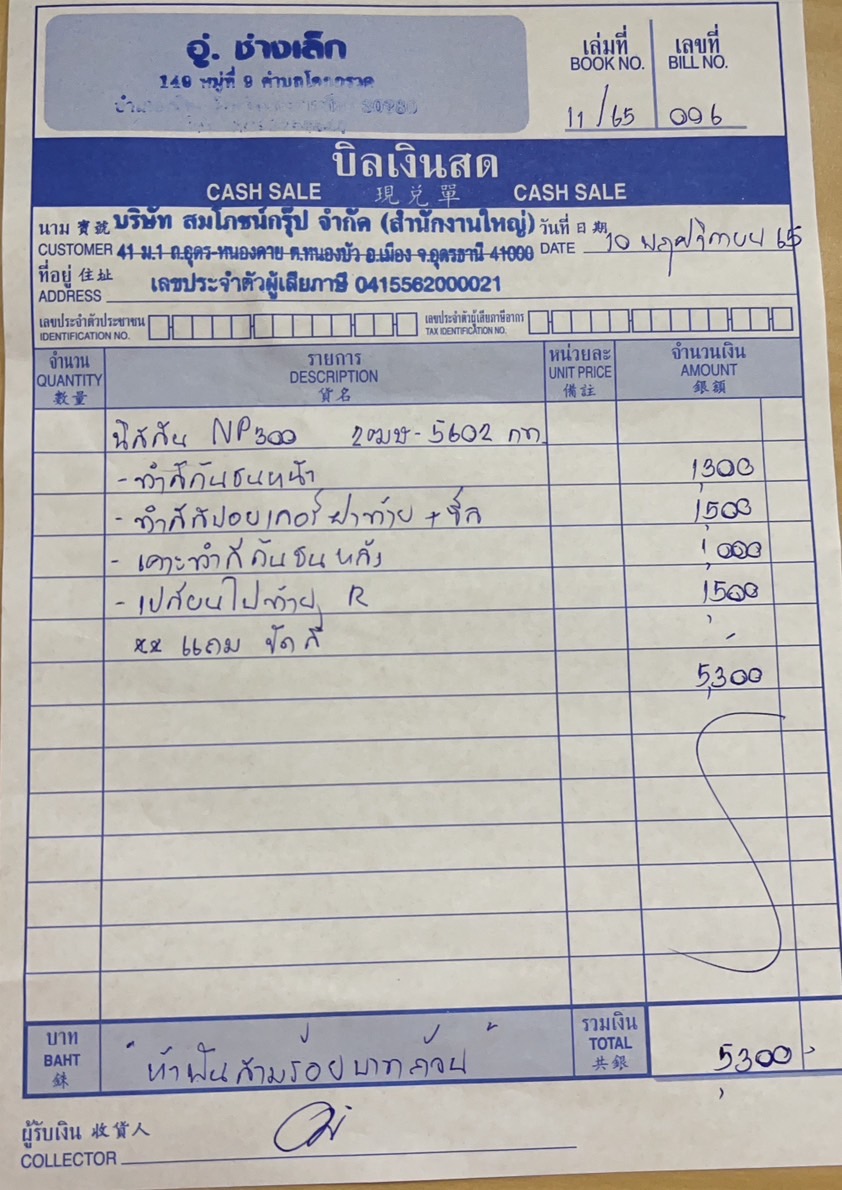 อู่. ช่างเล็ก
149 หมู่ที่ 9 ตำบลโคกกรวด
เล่มที่ เลขที่
BOOK NO. BILL NO.
11/65 096
บิลเงินสด
CASH SALE 現兌單 CASH SALE
นาม 寶號 บริษัท สมโภชน์กรุ๊ป จำกัด (สำนักงานใหญ่) วันที่ 日期
CUSTOMER 41 ม.1 ถ.อุดร-หนองคาย ต.หนองบัว อ.เมือง จ.อุดรธานี 41000 DATE 10 พฤศจิกายน 65
ที่อยู่ 住址 เลขประจำตัวผู้เสียภาษี 0415562000021
ADDRESS
เลขประจำตัวประชาชน เลขประจำตัวผู้เสียภาษีอากร
IDENTIFICATION NO. TAX IDENTIFICATION NO.
จำนวน รายการ หน่วยละ จำนวนเงิน
QUANTITY DESCRIPTION UNIT PRICE AMOUNT
數量 貨名 備註 銀額
นิสสัน NP300 2ฒษ-5602 กท.
- ทำสีกันชนหน้า 1,300
- ทำสีสปอยเกอร์ฝาท้าย + 1,500
- เคาะทำสีกันชนหลัง 1,000
- เปลี่ยนไฟท้าย R 1,500
xx แถม ขัดสี -
5,300
บาท รวมเงิน
BAHT " ห้าพันสามร้อยบาทถ้วน " TOTAL 5,300 -
銖 共銀
ผู้รับเงิน 收貨人
COLLECTOR